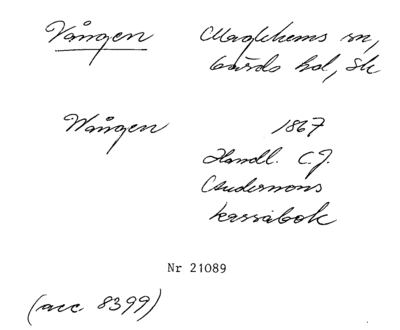 Vången Maglehems sn,
Gärds hd, Sk
Wången 1867
Handl. C.J.
Andersons
kassabok
Nr 21089
(acc. 8399)